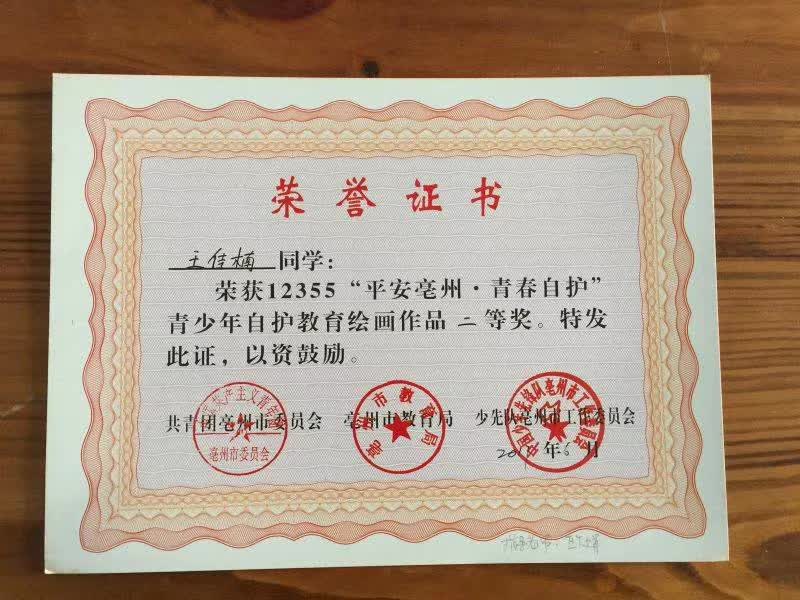 荣誉证书
王佳楠 同学:
荣获12355“平安亳州·青春自护”
青少年自护教育绘画作品 二 等奖。特发
此证，以资鼓励。
共青团亳州市委员会 亳州市教育局 少先队亳州市工作委员会
亳州市委员会
亳州市教育局
中国少年先锋队亳州市工作委员会
年6月